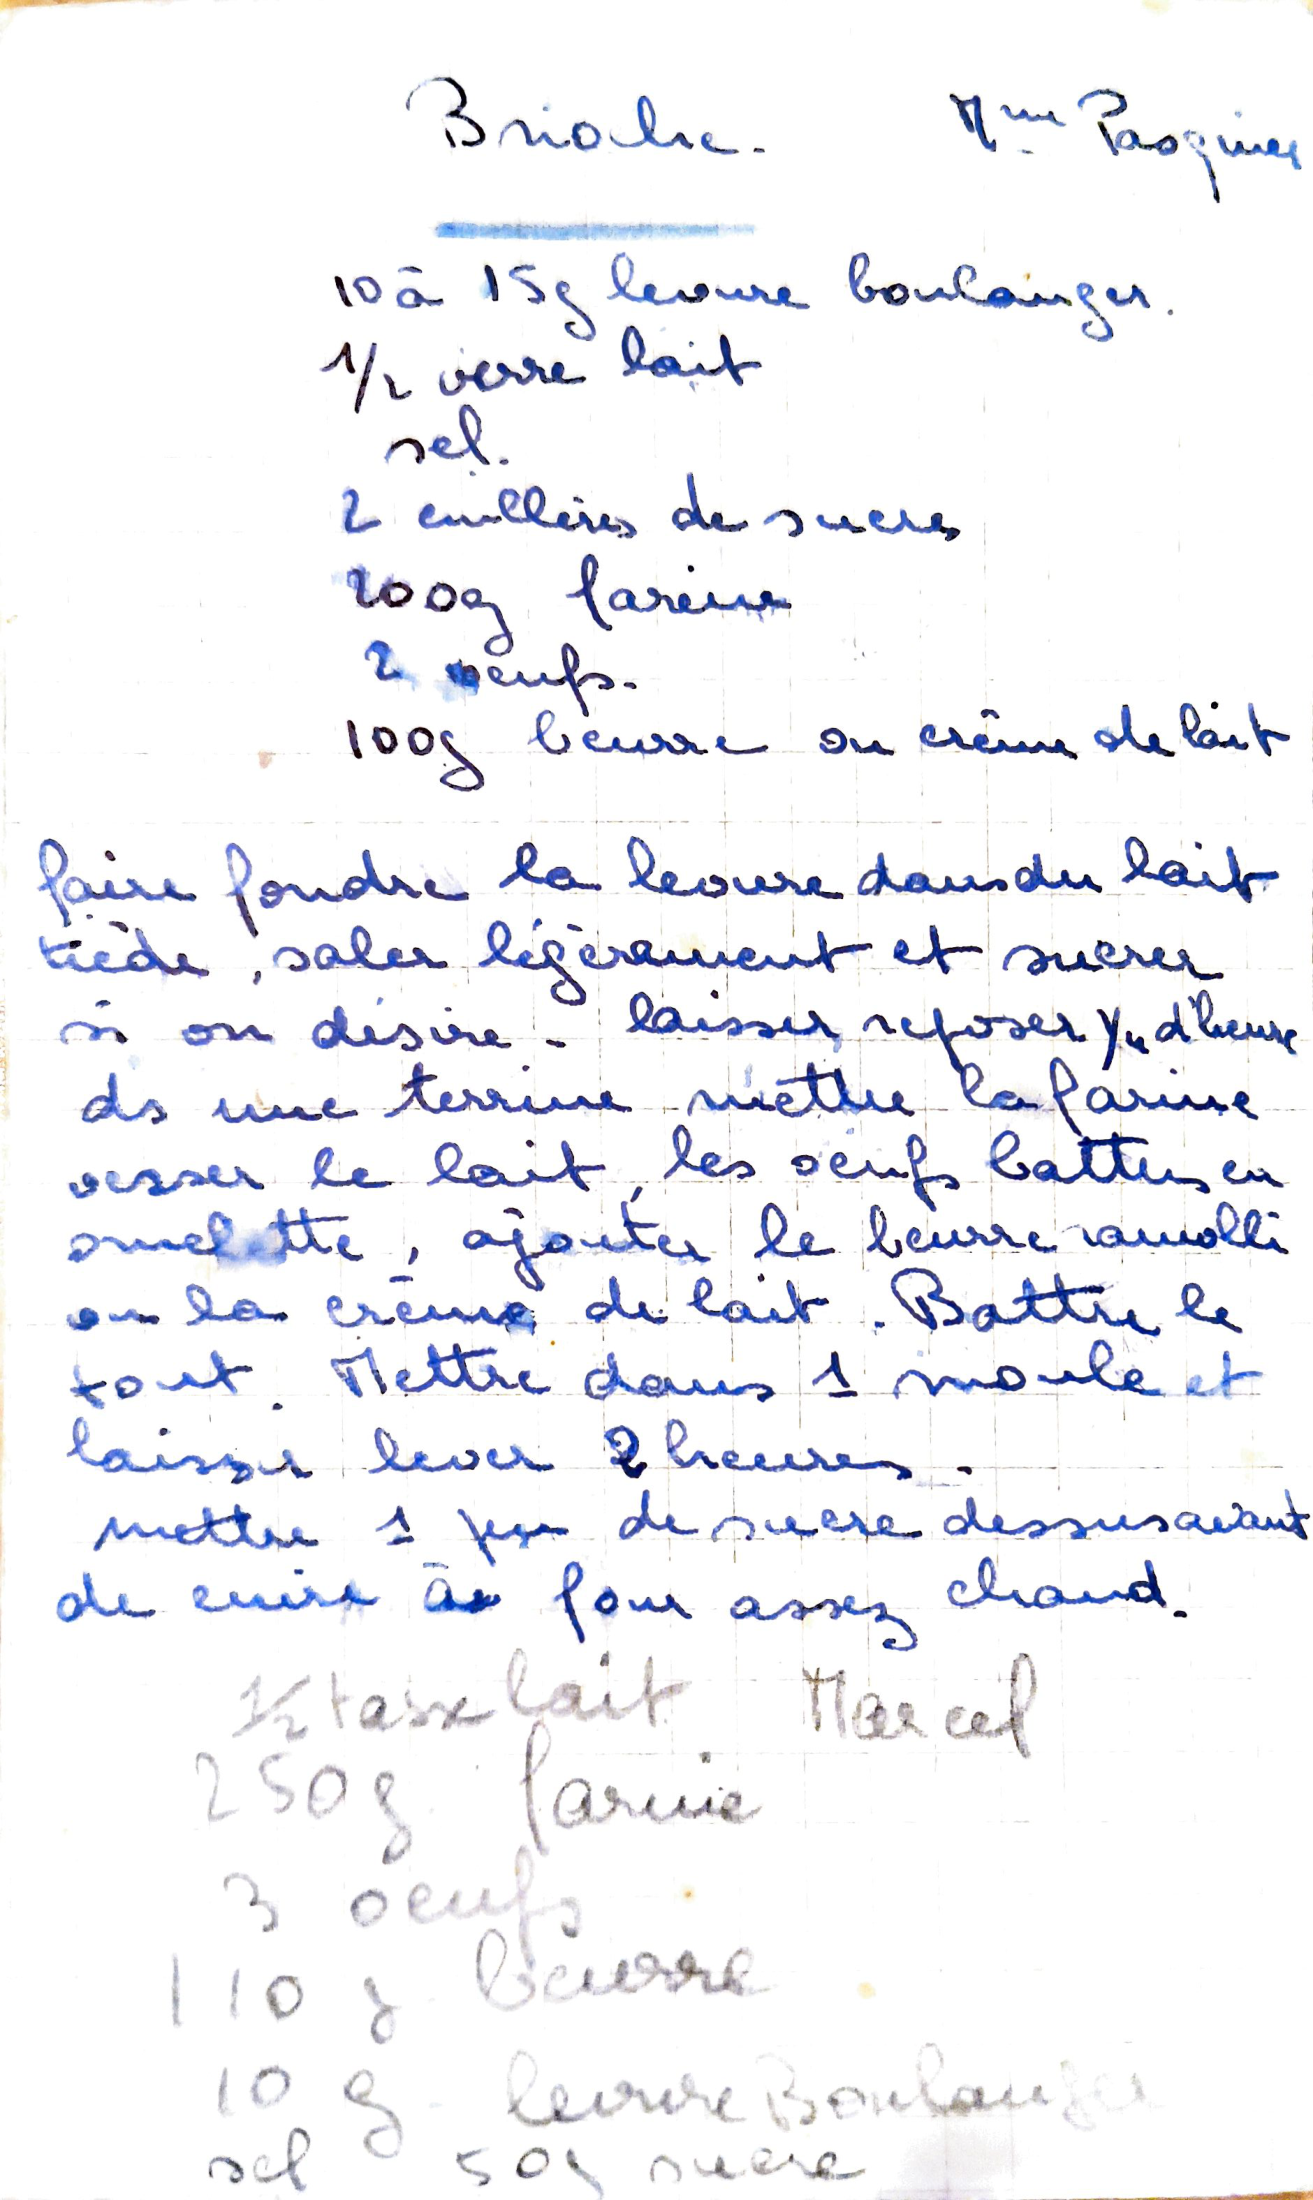 Brioche. Mme Pasquier
10 à 15g levure boulanger.
1/2 verre lait
sel.
2 cuillères de sucre
200g farine
2 oeufs.
100g beurre ou crème de lait
faire fondre la levure dans du lait
tiède, saler légèrement et sucrer
si on désire - laisser reposer 1/4 d'heure
ds une terrine mettre la farine
verser le lait, les oeufs battus en
omelette, ajouter le beurre ramolli
ou la crème de lait. Battre le
tout. Mettre dans 1 moule et
laisser lever 2 heures.
mettre 1 peu de sucre dessus avant
de cuire à four assez chaud.
1/2 tasse lait Marcel
250g farine
3 oeufs
110 g beurre
10 g levure Boulanger
sel 50g sucre